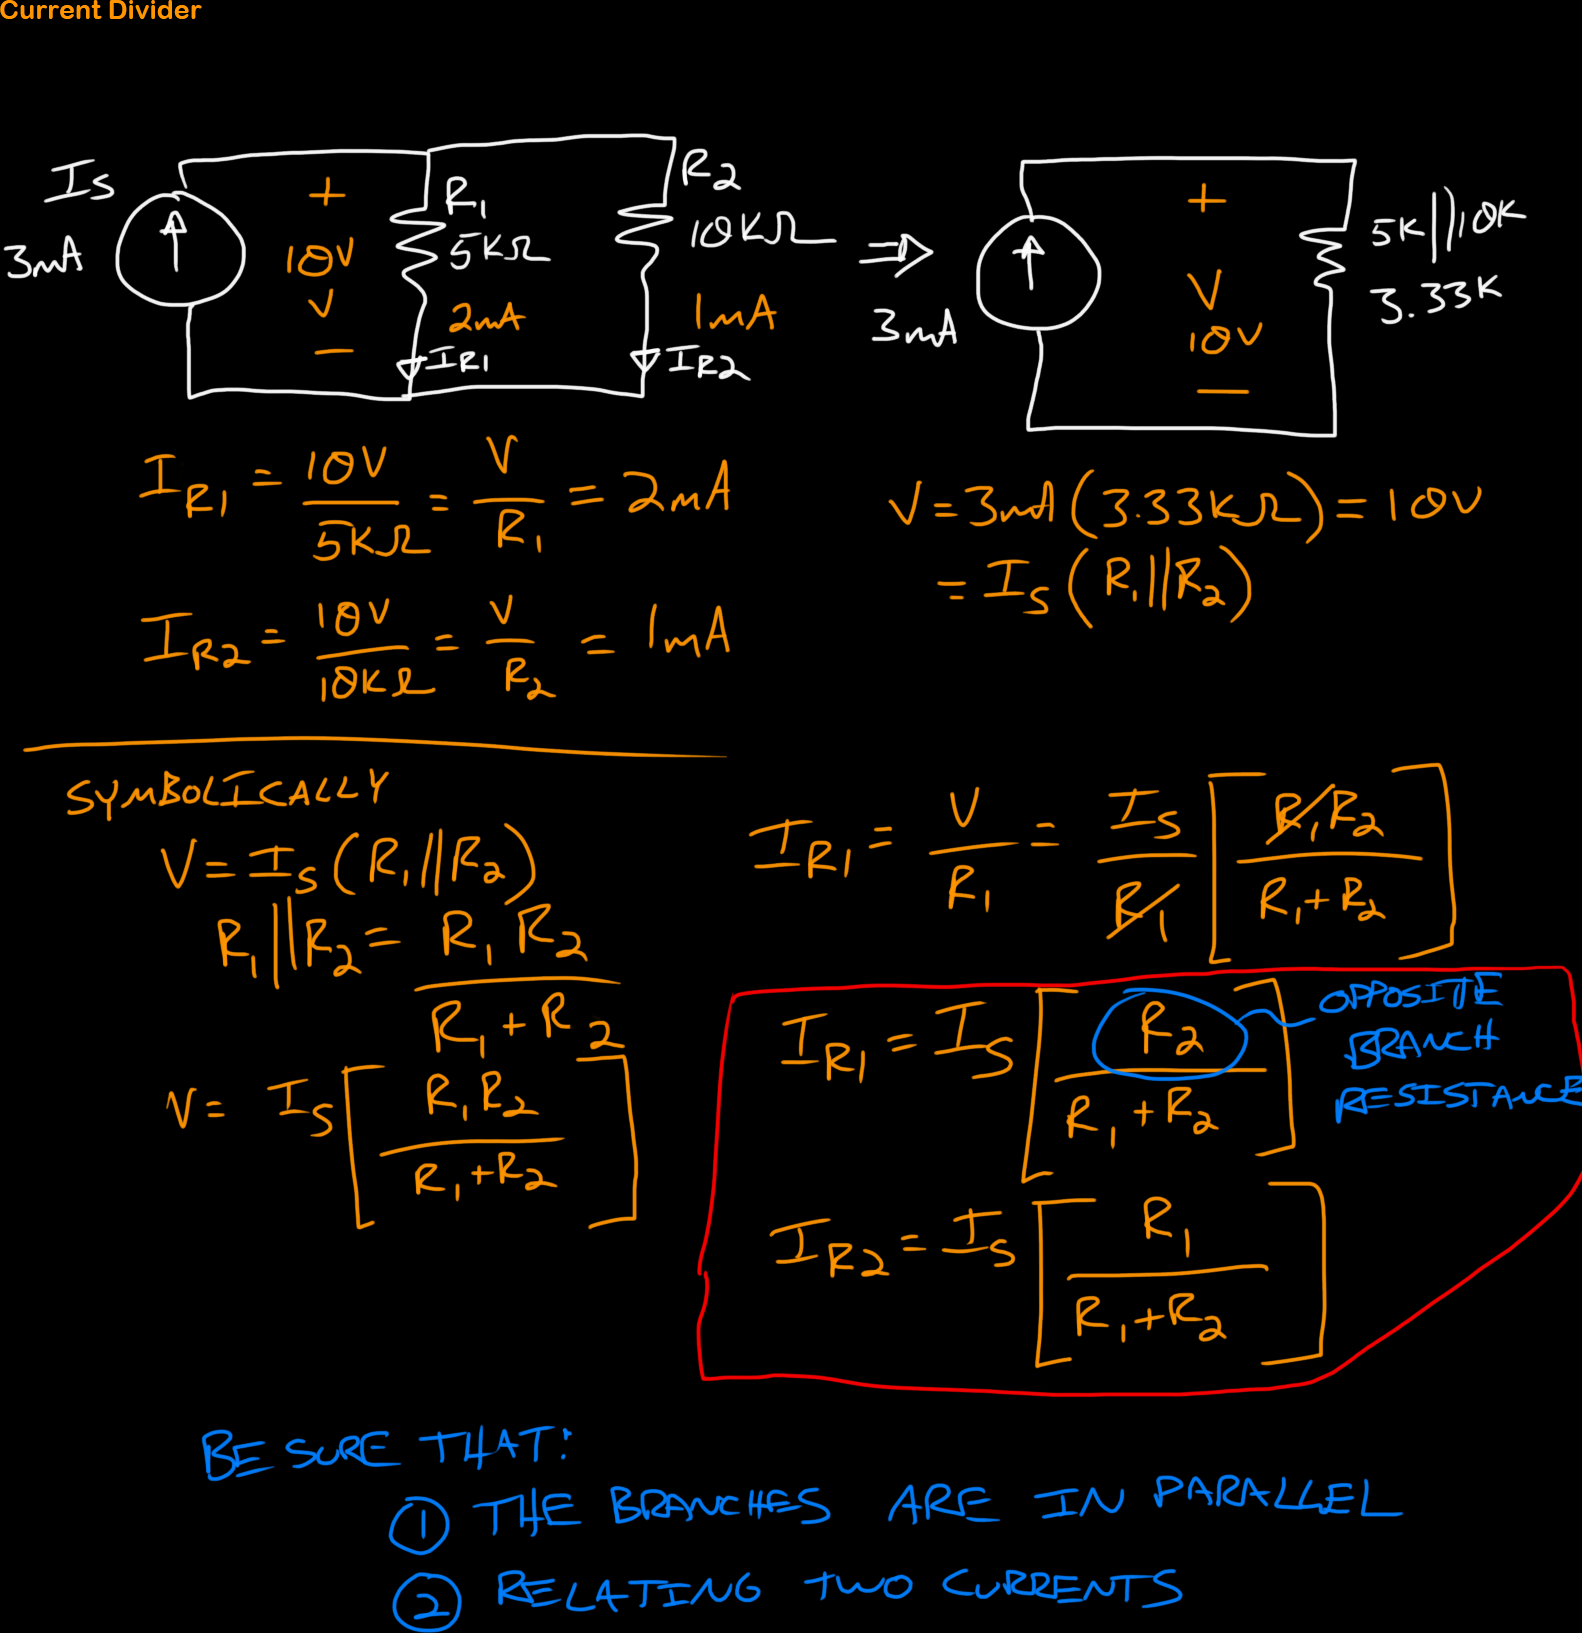 Current Divider
Is
3mA
+
10V
V
−
R1
5KΩ
2mA
IR1
R2
10KΩ
1mA
IR2
⇒
3mA
+
V
10V
−
5K||10K
3.33K
IR1 = 10V/5KΩ = V/R1 = 2mA
IR2 = 10V/10KΩ = V/R2 = 1mA
V = 3mA(3.33KΩ) = 10V
= Is(R1||R2)
SYMBOLICALLY
V = Is(R1||R2)
R1||R2 = R1R2/R1+R2
V = Is[R1R2/R1+R2]
IR1 = V/R1 = Is/R1[R1R2/R1+R2]
IR1 = Is[R2/R1+R2]
OPPOSITE
BRANCH
RESISTANCE
IR2 = Is[R1/R1+R2]
BE SURE THAT:
① THE BRANCHES ARE IN PARALLEL
② RELATING TWO CURRENTS